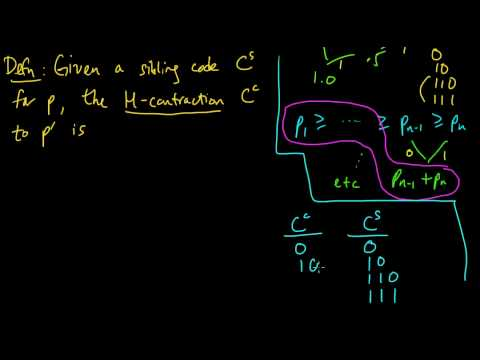 Defn: Given a sibling code Cˢ
for p, the H-contraction Cᶜ
to p' is
1.0
.5
1
0
10
110
111
p₁ ≥ ⋯ ≥ pₙ₋₁ ≥ pₙ
0 1
etc
pₙ₋₁+pₙ
Cᶜ Cˢ
0 0
10 10
110
111